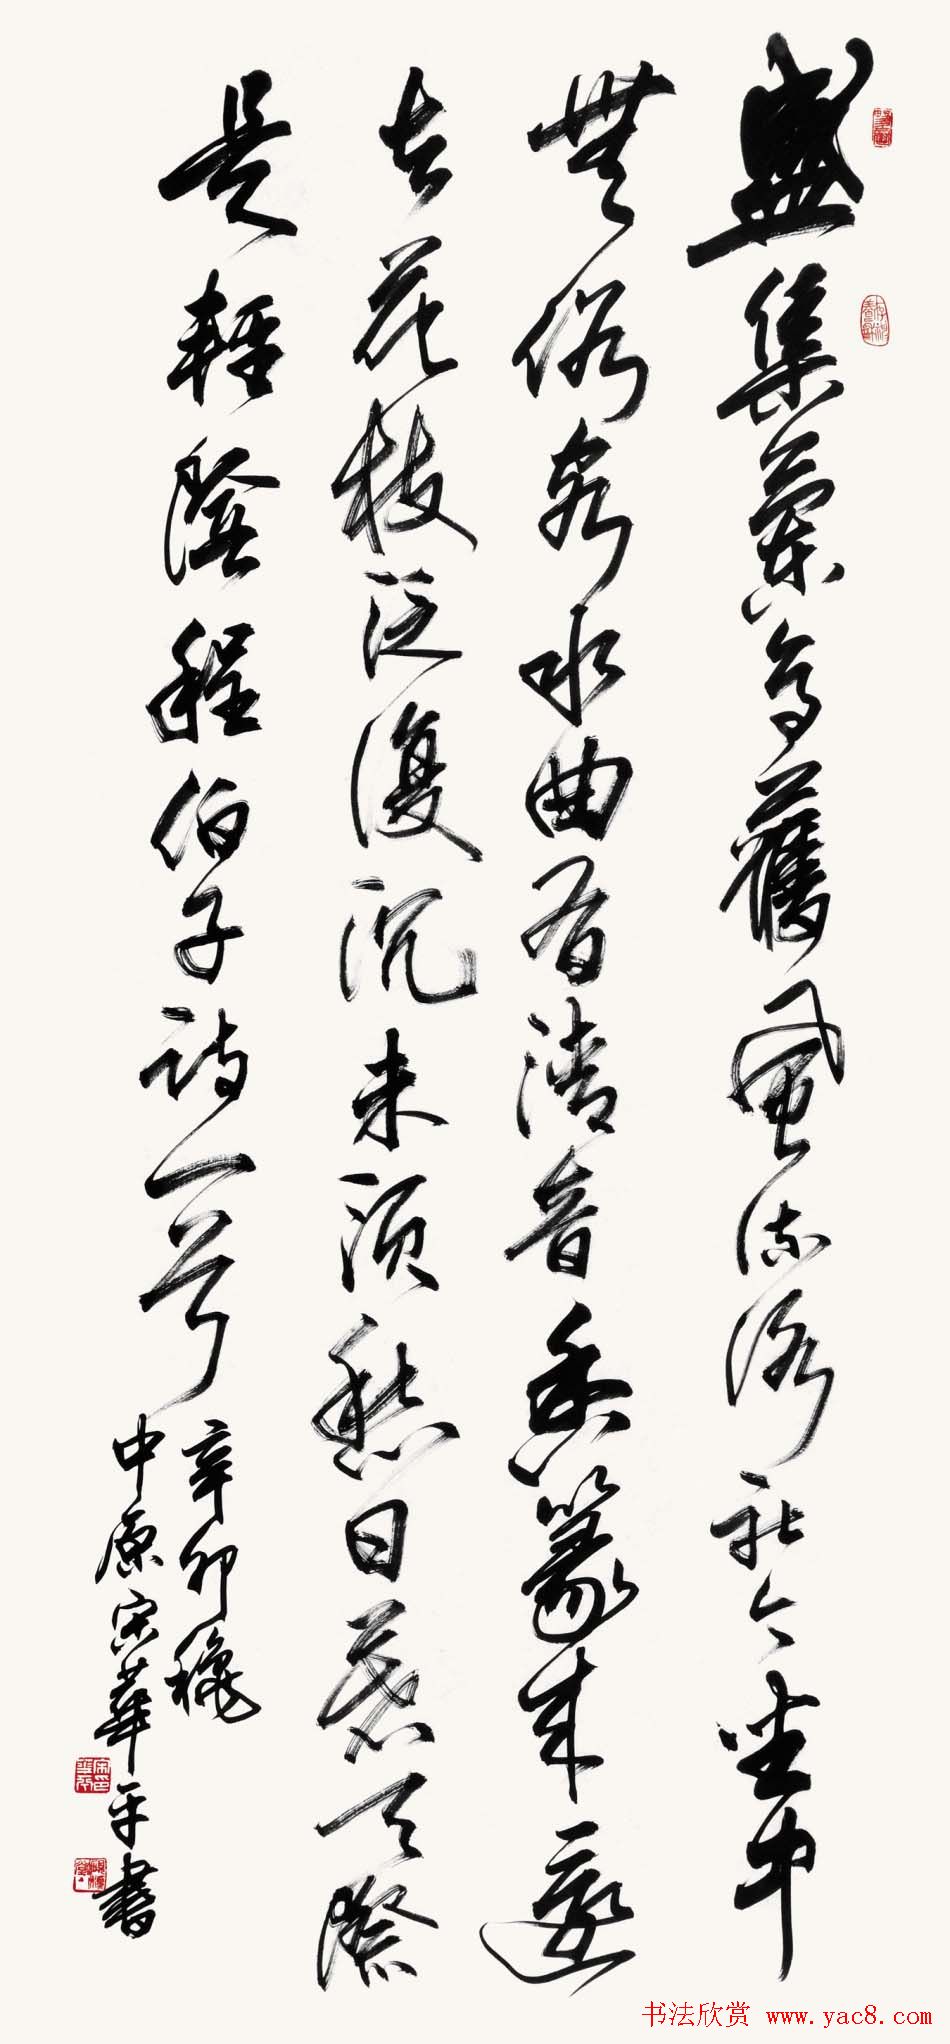 盛集蘭亭舊風流洛社今坐中
無俗客水曲有清音香篆來還
去花枝泛復沉未須愁日暮天際
是輕陰程伯子詩一首
辛卯穐
中原宋華平書
书法欣赏 www.yac8.com